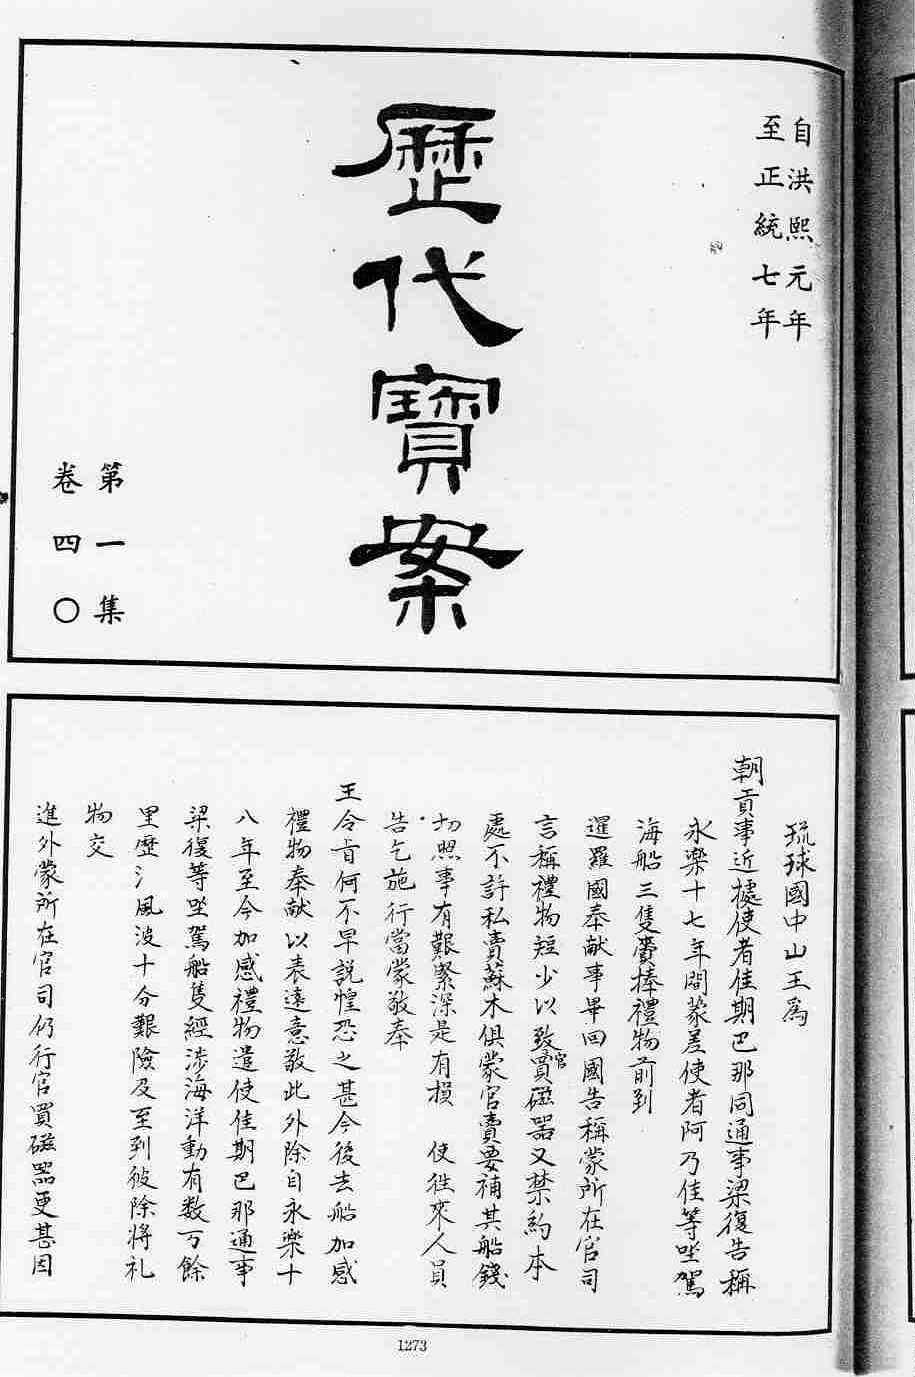 自洪熙元年
至正統七年
歷代寶案
第一集
卷四〇
琉球國中山王為
朝貢事近據使者佳期巴那同通事梁復告稱
永樂十七年間蒙差使者阿乃佳等坐駕
海船三隻賫捧禮物前到
暹羅國奉献事畢回國告稱蒙所在官司
言稱禮物短少以致官買磁器又禁約本
處不許私賣蘇木俱蒙官賣要補其船錢
切照事有艱緊深是有損 使往來人員
告乞施行當蒙敬奉
王令旨何不早説惶恐之甚今後去船加感
禮物奉献以表遠意敬此外除自永樂十
八年至今加感禮物遣使佳期巴那通事
梁復等坐駕船隻經涉海洋動有数万餘
里歷氵風波十分艱險及至到彼除將礼
物交
進外蒙所在官司仍行官買磁器更甚因
1273